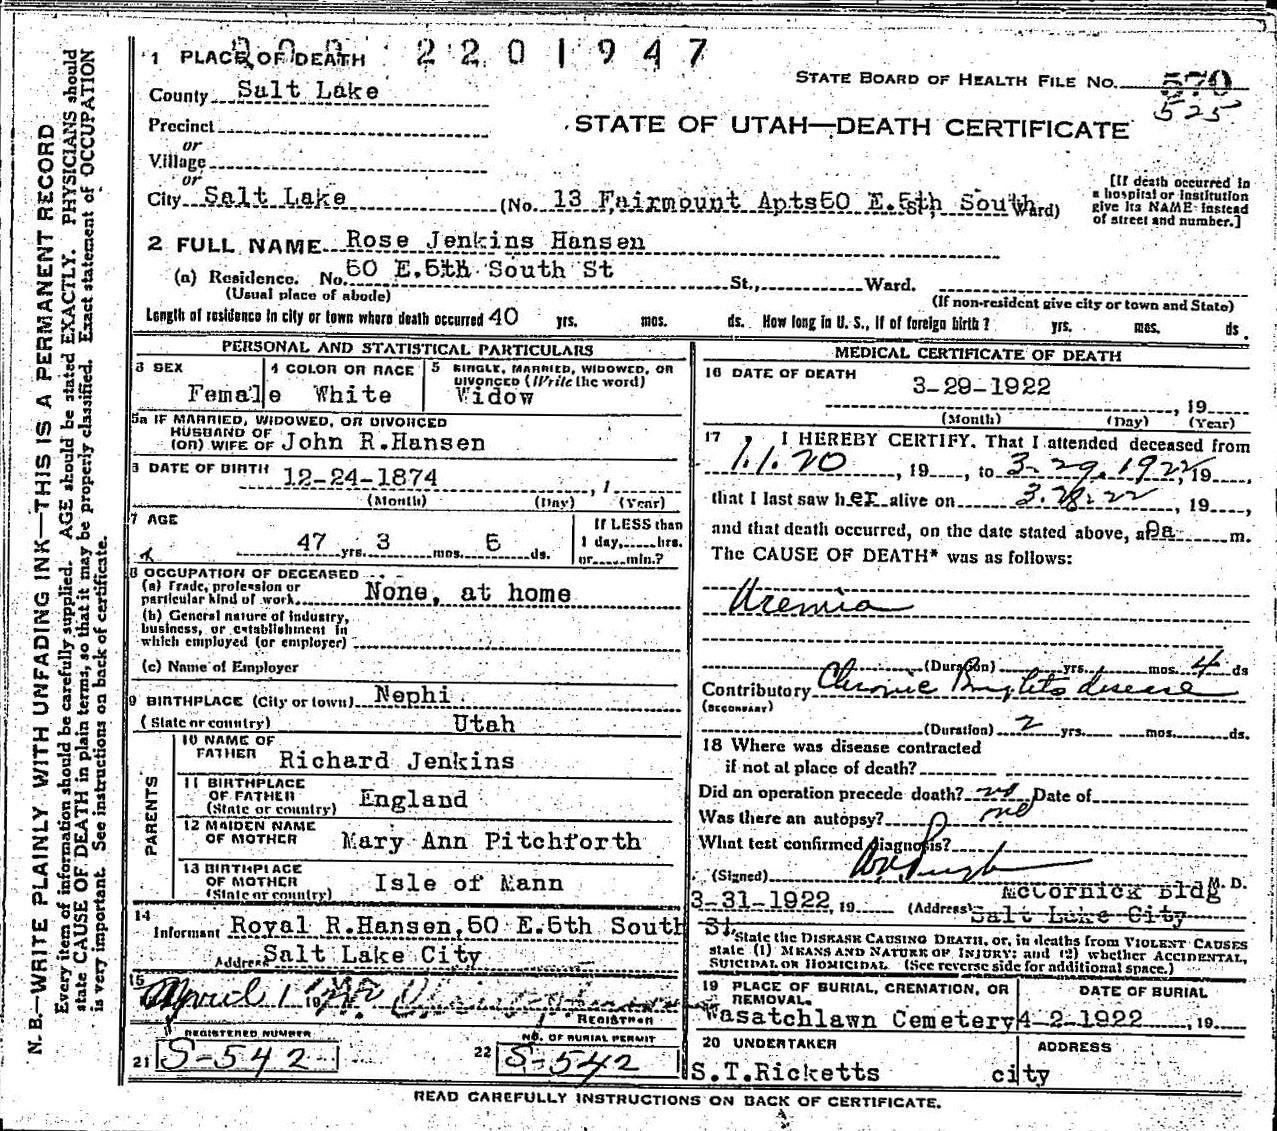 2 2 0 1 9 4 7
1 PLACE OF DEATH
STATE BOARD OF HEALTH FILE No. 570
525
County Salt Lake
STATE OF UTAH—DEATH CERTIFICATE
Precinct
or
Village
or
City Salt Lake (No. 13 Fairmount Apts50 E.5th South Ward)
[If death occurred in a hospital or Institution give its NAME instead of street and number.]
2 FULL NAME Rose Jenkins Hansen
(a) Residence. No. 50 E.5th South St St., Ward.
(Usual place of abode) (If non-resident give city or town and State)
Length of residence in city or town where death occurred 40 yrs. mos. ds. How long in U. S., if of foreign birth? yrs. mos. ds.
PERSONAL AND STATISTICAL PARTICULARS
3 SEX Female
4 COLOR OR RACE White
5 SINGLE, MARRIED, WIDOWED, OR DIVORCED (Write the word) Widow
5a IF MARRIED, WIDOWED, OR DIVORCED
HUSBAND OF
(OR) WIFE OF John R.Hansen
DATE OF BIRTH 12-24-1874 , 1
(Month) (Day) (Year)
7 AGE
47 yrs. 3 mos. 5 ds.
If LESS than
1 day, hrs.
or min.?
8 OCCUPATION OF DECEASED
(a) Trade, profession or
particular kind of work None, at home
(b) General nature of industry,
business, or establishment in
which employed (or employer)
(c) Name of Employer
9 BIRTHPLACE (City or town) Nephi
(State or country) Utah
PARENTS
10 NAME OF
FATHER Richard Jenkins
11 BIRTHPLACE
OF FATHER
(State or country) England
12 MAIDEN NAME
OF MOTHER Mary Ann Pitchforth
13 BIRTHPLACE
OF MOTHER
(State or country) Isle of Mann
14
Informant Royal R.Hansen,50 E.5th South St.
Address Salt Lake City
15 April 1 19
REGISTRAR
REGISTERED NUMBER
21 S-542
NO. OF BURIAL PERMIT
22 S-542
MEDICAL CERTIFICATE OF DEATH
16 DATE OF DEATH 3-29-1922
, 19
(Month) (Day) (Year)
17 I HEREBY CERTIFY. That I attended deceased from
1.1.20 , 19 , to 3-29.1922, 19 ,
that I last saw her alive on 3.28.22 , 19 ,
and that death occurred, on the date stated above, at m.
The CAUSE OF DEATH* was as follows:
Uremia
(Duration) yrs. mos. 4 ds
Contributory Chronic Brights disease
(SECONDARY)
(Duration) 2 yrs. mos. ds.
18 Where was disease contracted
if not at place of death?
Did an operation precede death? no Date of
Was there an autopsy? no
What test confirmed diagnosis?
(Signed) M. D.
3-31-1922, 19 (Address) McCornick Bldg
Salt Lake City
*State the DISEASE CAUSING DEATH, or, in deaths from VIOLENT CAUSES
state (1) MEANS AND NATURE OF INJURY; and (2) whether ACCIDENTAL,
SUICIDAL OR HOMICIDAL. (See reverse side for additional space.)
19 PLACE OF BURIAL, CREMATION, OR
REMOVAL. DATE OF BURIAL
Wasatchlawn Cemetery 4-2-1922 , 19
20 UNDERTAKER ADDRESS
S.T.Ricketts city
READ CAREFULLY INSTRUCTIONS ON BACK OF CERTIFICATE.
N. B.—WRITE PLAINLY WITH UNFADING INK—THIS IS A PERMANENT RECORD
Every item of information should be carefully supplied. AGE should be stated EXACTLY. PHYSICIANS should
state CAUSE OF DEATH in plain terms, so that it may be properly classified. Exact statement of OCCUPATION
is very important. See instructions on back of certificate.